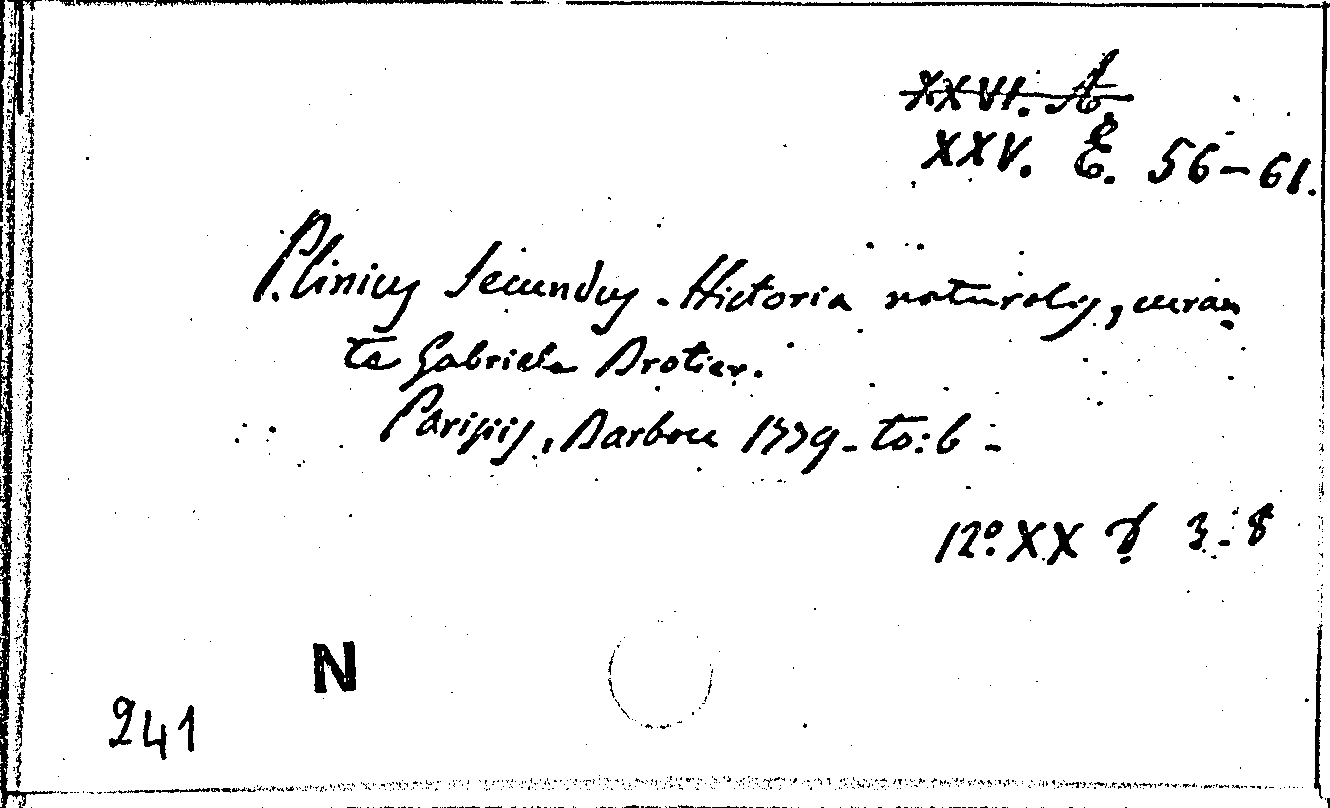 XXVI. A.
XXV. E. 56-61.
Plinius Secundus - Historia naturalis, curan
te Gabriele Brotier.
Parisiis, Barbou 1779 - to: 6 -
12º XX 3-8
N
241